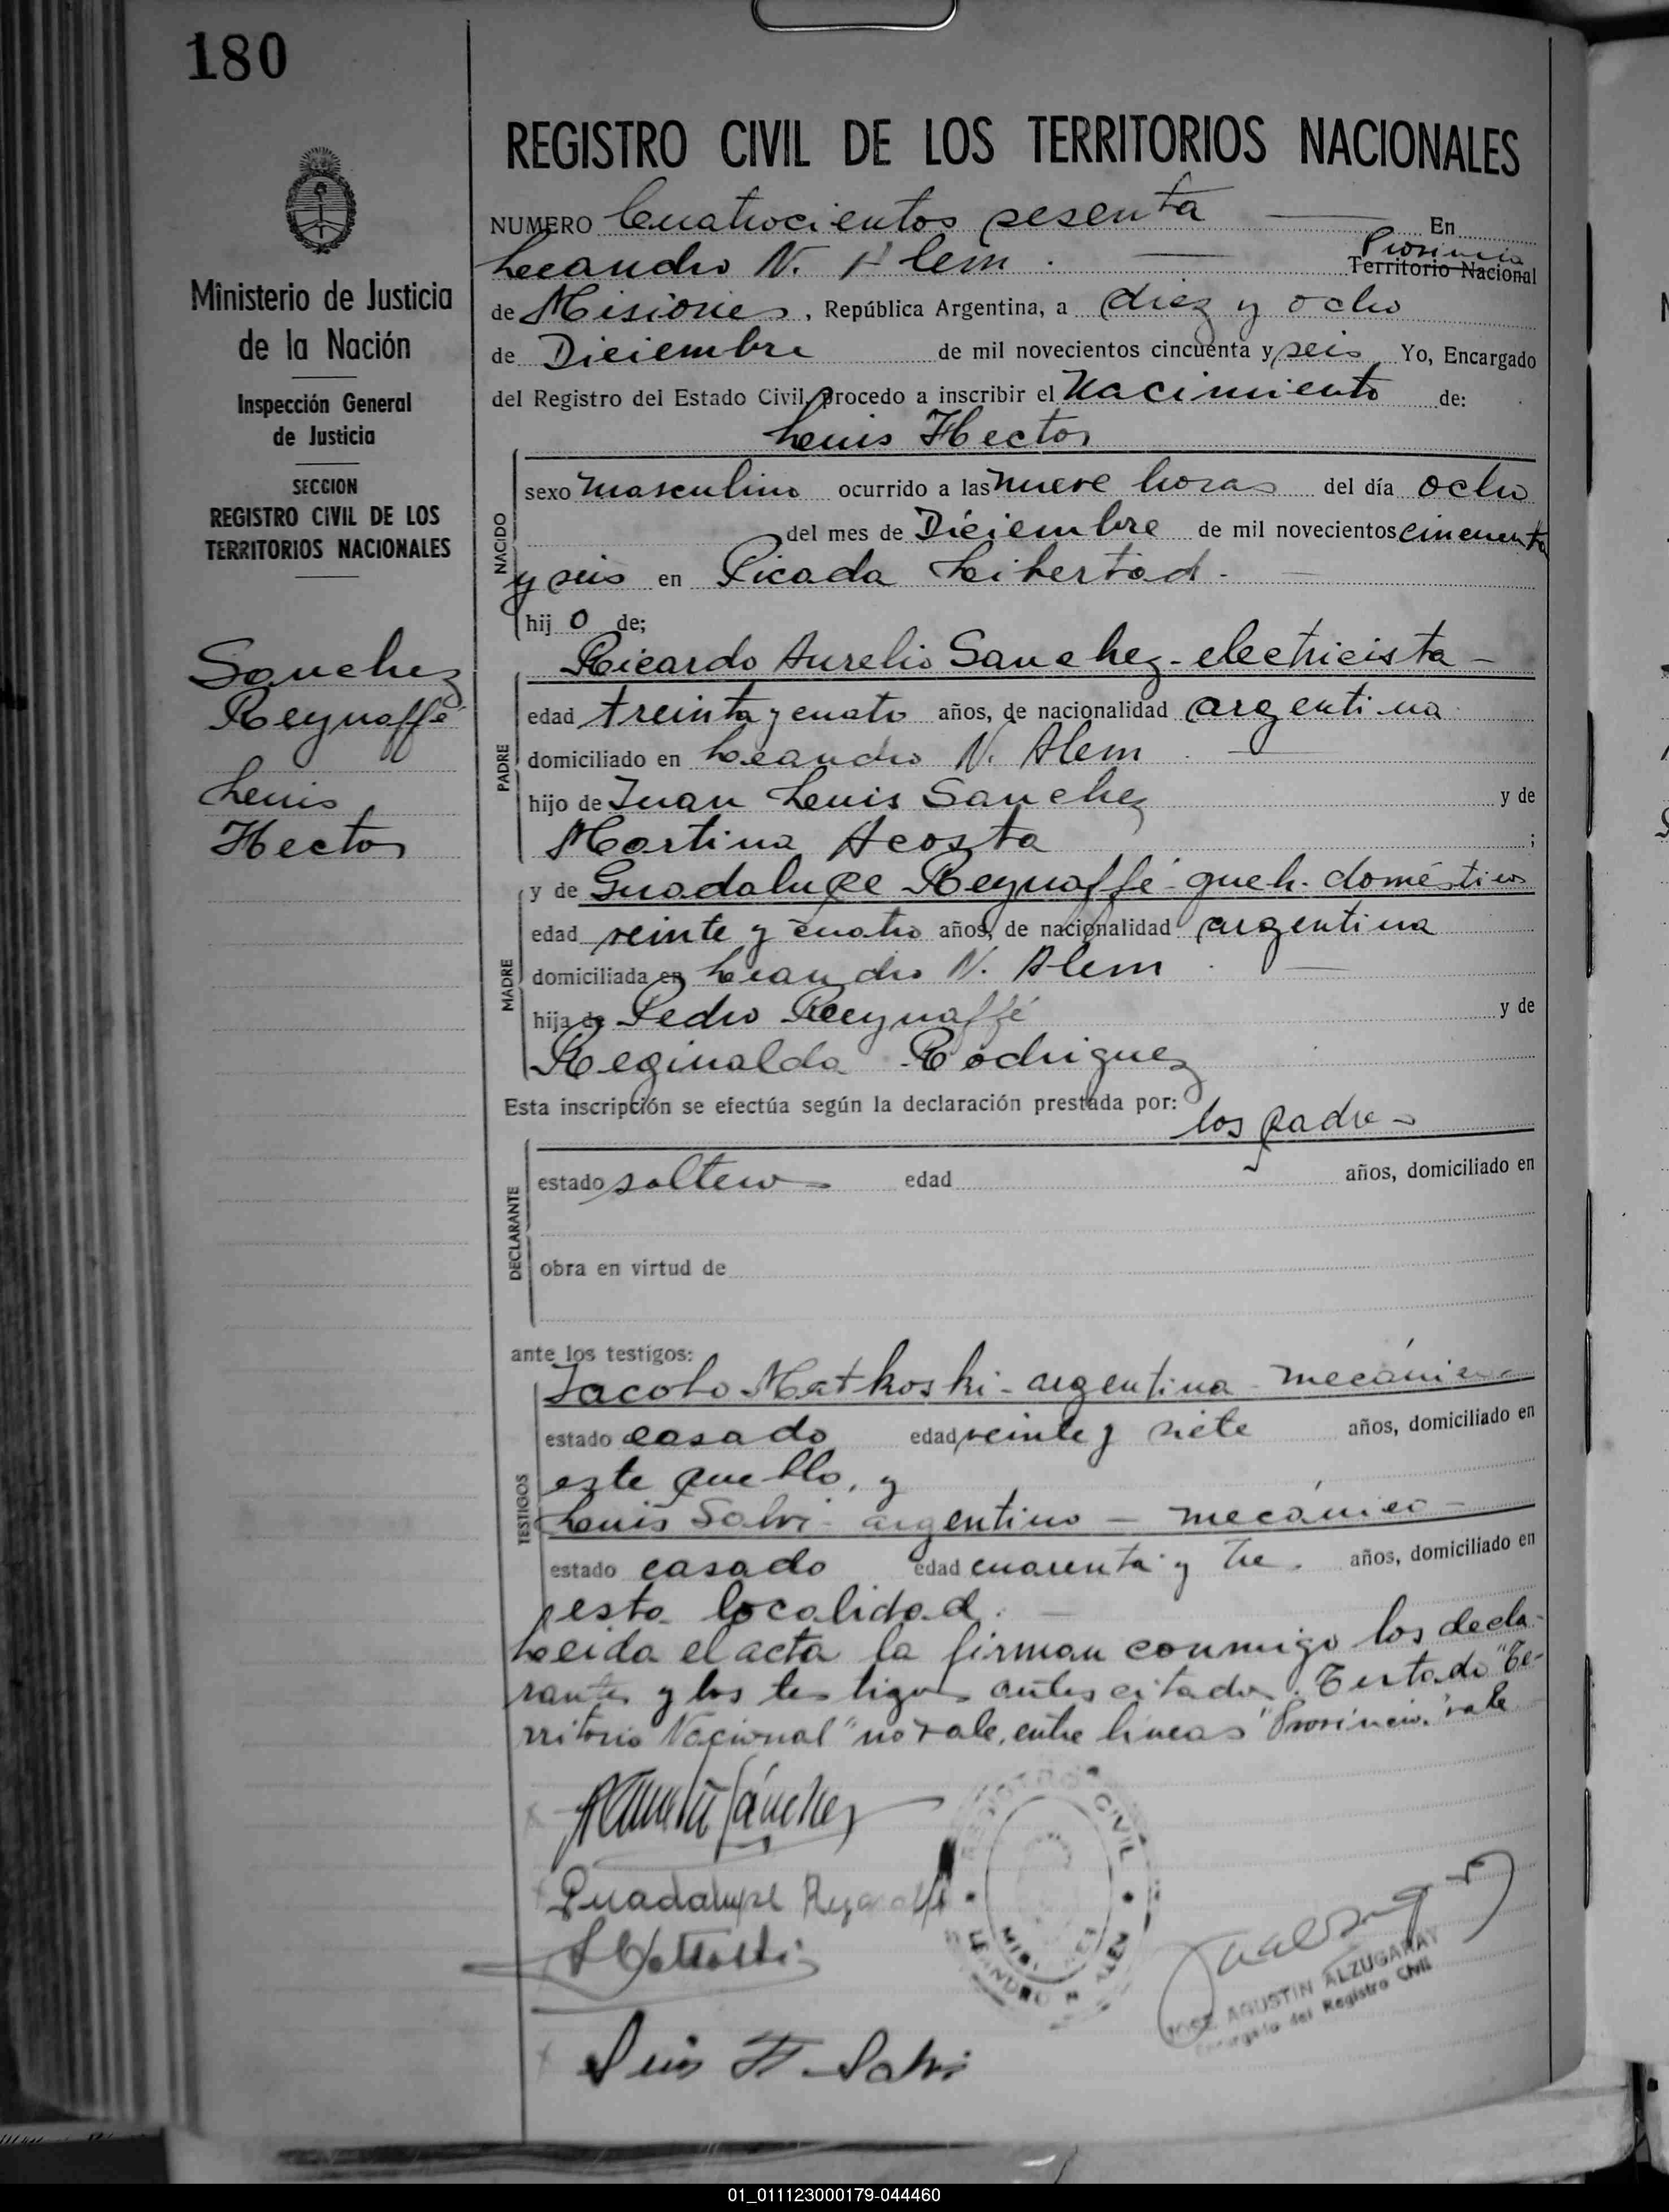 180
REGISTRO CIVIL DE LOS TERRITORIOS NACIONALES
Ministerio de Justicia
de la Nación
Inspección General
de Justicia
SECCION
REGISTRO CIVIL DE LOS
TERRITORIOS NACIONALES
Sanchez
Reynaffé
Luis
Hector
NUMERO Cuatrocientos sesenta En
Leandro N. Alem. Provincia
Territorio Nacional
de Misiones, República Argentina, a diez y ocho
de Diciembre de mil novecientos cincuenta y seis Yo, Encargado
del Registro del Estado Civil, procedo a inscribir el Nacimiento de:
Luis Hector
NACIDO
sexo masculino ocurrido a las nueve horas del día ocho
del mes de Diciembre de mil novecientos cincuenta
y seis en Picada Libertad.-
hij o de;
Ricardo Aurelio Sanchez - electricista -
PADRE
edad treinta y cuatro años, de nacionalidad argentina
domiciliado en Leandro N. Alem
hijo de Juan Luis Sanchez y de
Martina Acosta ;
y de Guadalupe Reynaffé - queh. domésticos
MADRE
edad veinte y cuatro años, de nacionalidad argentina
domiciliada en Leandro N. Alem
hija de Pedro Reeynaffé y de
Reginalda Rodriguez
Esta inscripción se efectúa según la declaración prestada por:
los padres
DECLARANTE
estado solteros edad años, domiciliado en
obra en virtud de
ante los testigos:
Jacobo Matkoski - argentina - mecánico
TESTIGOS
estado casado edad veinte y siete años, domiciliado en
este pueblo, y
Luis Salvi - argentino - mecánico -
estado casado edad cuarenta y tres años, domiciliado en
esta localidad.
Leida el acta la firman conmigo los decla-
rantes y los testigos antes citados. Testado "Te-
rritorio Nacional" no vale, entre lineas "Provincia" vale
Sánchez
Guadalupe Reynaffé
Luis H. Salvi
REGISTRO CIVIL
MISIONES
LEANDRO N. ALEM
JOSE AGUSTIN ALZUGARAY
Encargado del Registro Civil
01_011123000179-044460